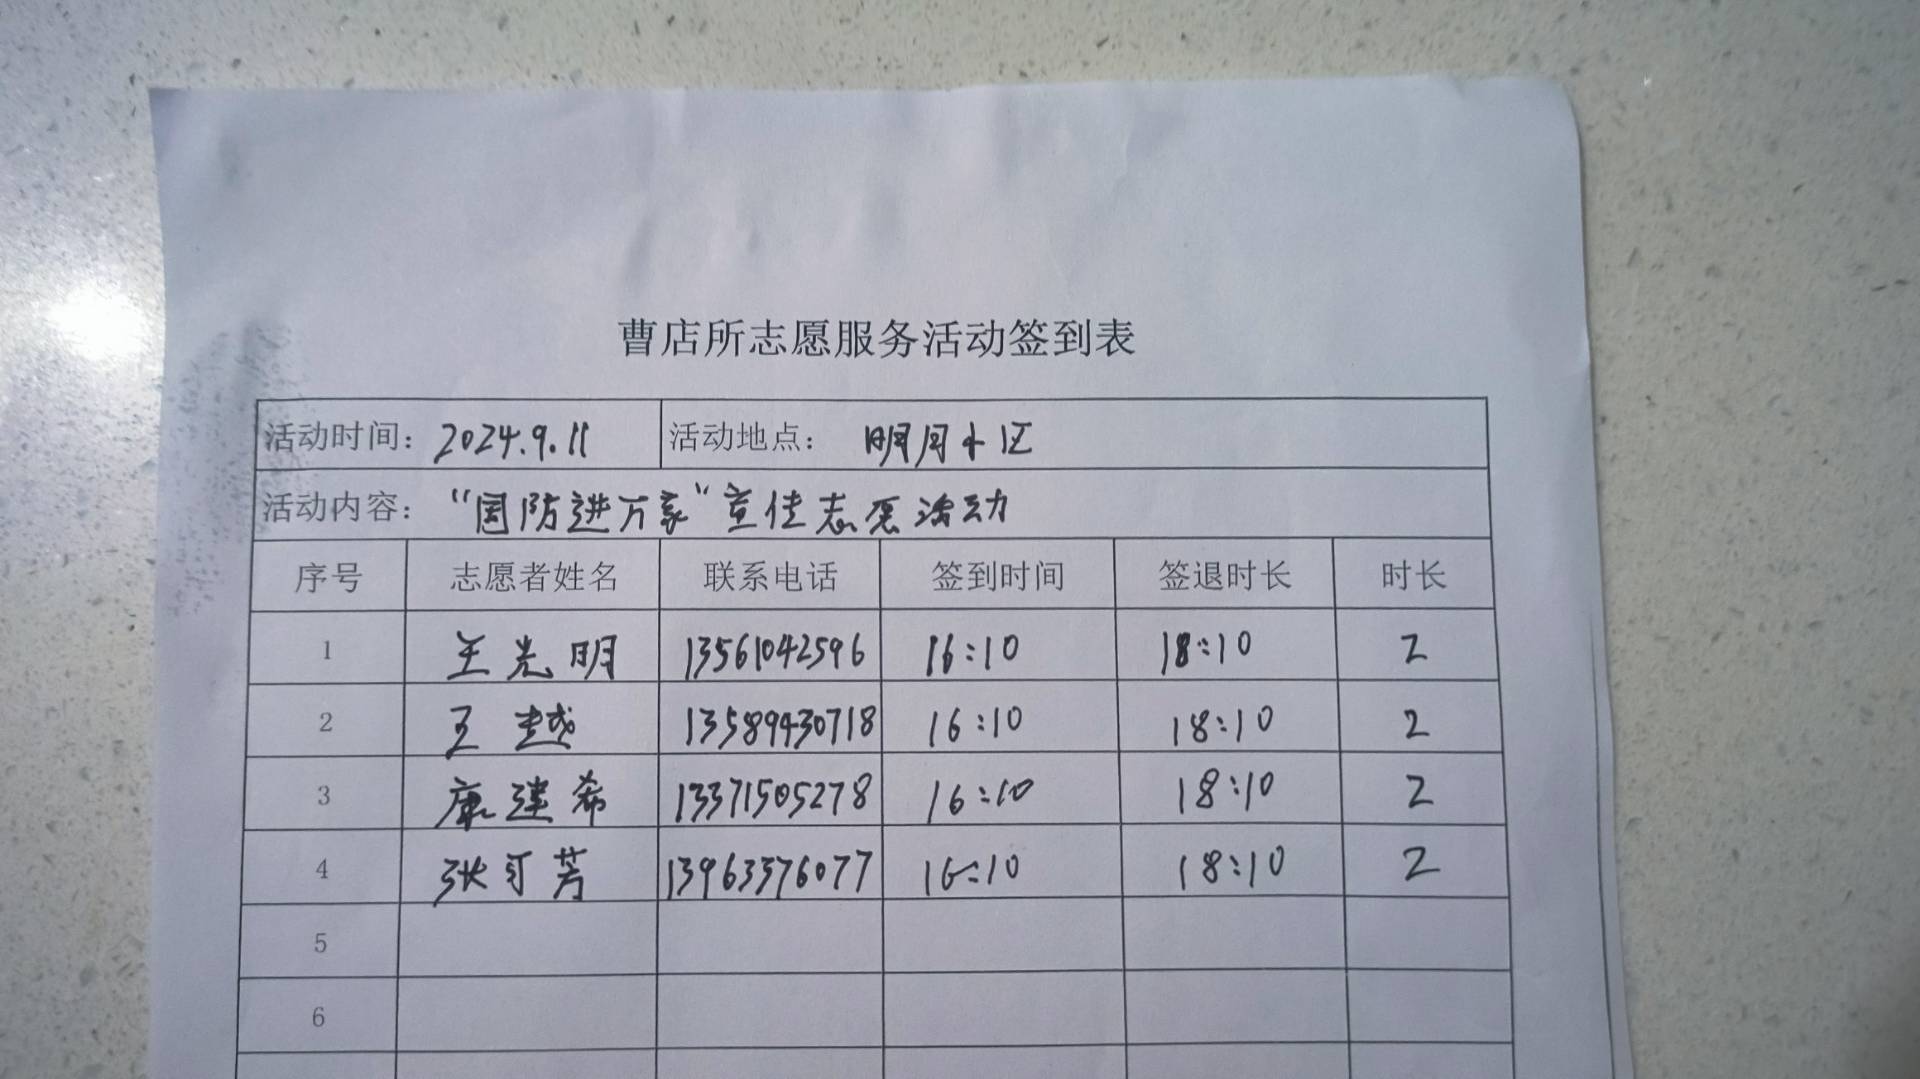 曹店所志愿服务活动签到表
活动时间： 2024.9.11 活动地点： 明月小区
活动内容： “国防进万家”宣传志愿活动
序号 志愿者姓名 联系电话 签到时间 签退时长 时长
1 王光明 13561042596 16:10 18:10 2
2 王越 13589430718 16:10 18:10 2
3 康建希 13371505278 16:10 18:10 2
4 张可芳 13963376077 16:10 18:10 2
5
6